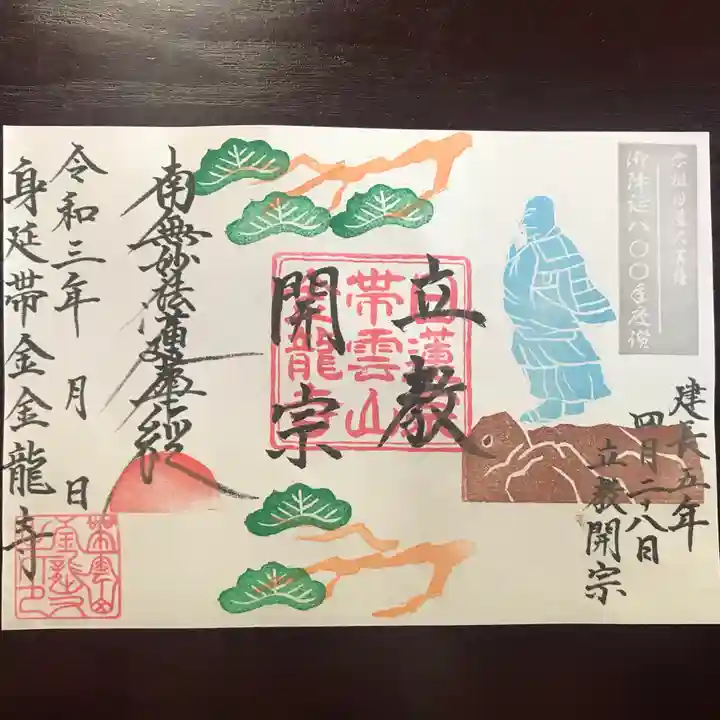 宗祖日蓮大聖人
御降誕八〇〇年慶讃
建長五年
四月二十八日
立教開宗
立教
開宗
日蓮宗
帯雲山
金龍寺
南無妙法蓮華経
令和三年 月 日
身延帯金金龍寺
帯雲山
金龍寺